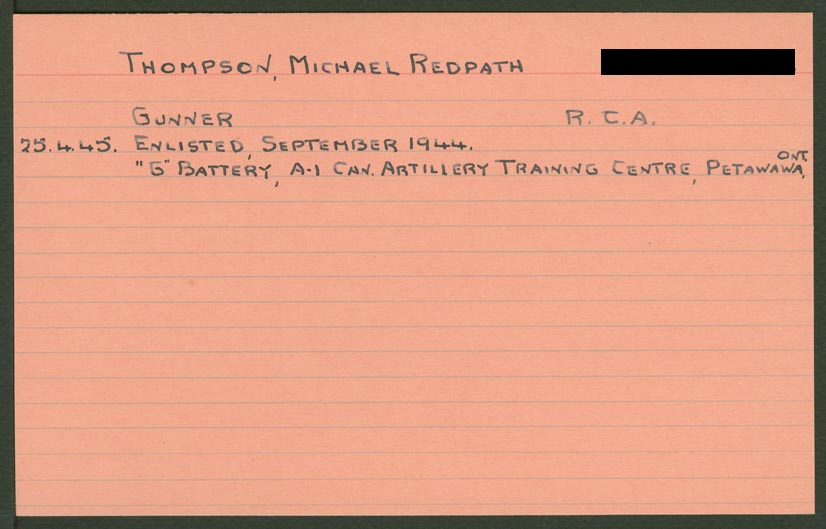 THOMPSON, MICHAEL REDPATH
GUNNER R.C.A.
25.4.45. ENLISTED, SEPTEMBER 1944.
"G" BATTERY, A-1 CAN. ARTILLERY TRAINING CENTRE, PETAWAWA, ONT.